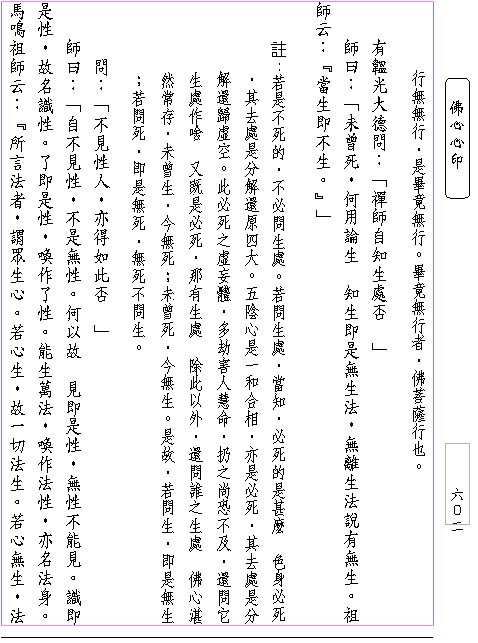 佛心心印
六０二
行無無行，是畢竟無行。畢竟無行者，佛菩薩行也。
有韞光大德問：「禪師自知生處否　」
師曰：「未曾死，何用論生　知生即是無生法，無離生法說有無生。祖
師云：『當生即不生。』」
註：若是不死的，不必問生處。若問生處，當知，必死的是甚麼　色身必死
，其去處是分解還原四大。五陰心是一和合相，亦是必死，其去處是分
解還歸虛空。此必死之虛妄體，多劫害人慧命，扔之尚恐不及，還問它
生處作啥　又既是必死，那有生處　除此以外，還問誰之生處　佛心湛
然常存，未曾生，今無死；未曾死，今無生。是故，若問生，即是無生
；若問死，即是無死，無死不問生。
問：「不見性人，亦得如此否　」
師曰：「自不見性，不是無性。何以故　見即是性，無性不能見。識即
是性，故名識性。了即是性，喚作了性。能生萬法，喚作法性，亦名法身。
馬鳴祖師云：『所言法者，謂眾生心。若心生，故一切法生。若心無生，法